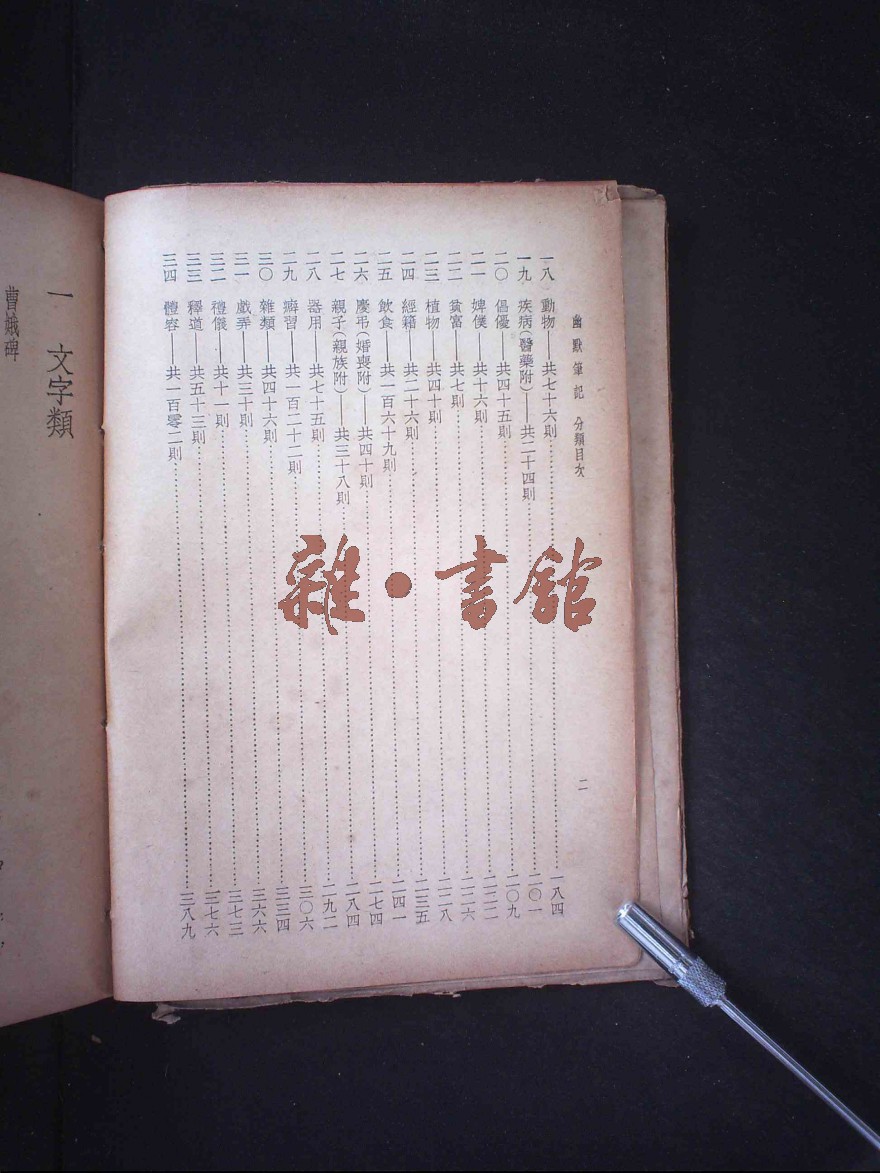 幽默筆記 分類目次
二
一八 動物——共七十六則……一八四
一九 疾病(醫藥附)——共二十四則……二〇一
二〇 倡優——共四十五則……二〇九
二一 婢僕——共十六則……二二二
二二 貧富——共七則……二二六
二三 植物——共四十則……二二八
二四 經籍——共二十六則……二三五
二五 飲食——共一百六十九則……二四一
二六 慶弔(婚喪附)——共四十則……二七四
二七 親子(親族附)——共三十八則……二八四
二八 器用——共七十五則……二九二
二九 癖習——共一百二十二則……三〇六
三〇 雜類——共四十六則……三三四
三一 戲弄——共三十則……三六六
三二 禮儀——共十一則……三七三
三三 釋道——共五十三則……三七六
三四 體容——共一百零二則……三八九
一 文字類
曹娥碑
雜·書館